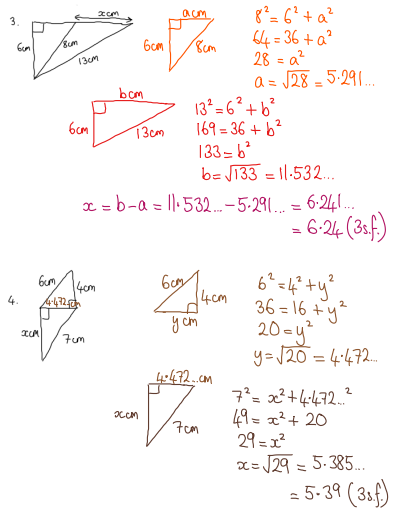 3.
x cm
6cm
8cm
13cm
a cm
6cm
8cm
8² = 6² + a²
64 = 36 + a²
28 = a²
a = √28 = 5·291...
b cm
6cm
13cm
13² = 6² + b²
169 = 36 + b²
133 = b²
b = √133 = 11·532...
x = b - a = 11·532... - 5·291... = 6·241...
= 6·24 (3s.f.)
4.
6cm
4cm
4·472...cm
x cm
7cm
6cm
4cm
y cm
6² = 4² + y²
36 = 16 + y²
20 = y²
y = √20 = 4·472...
4·472...cm
x cm
7cm
7² = x² + 4·472...²
49 = x² + 20
29 = x²
x = √29 = 5·385...
= 5·39 (3s.f.)